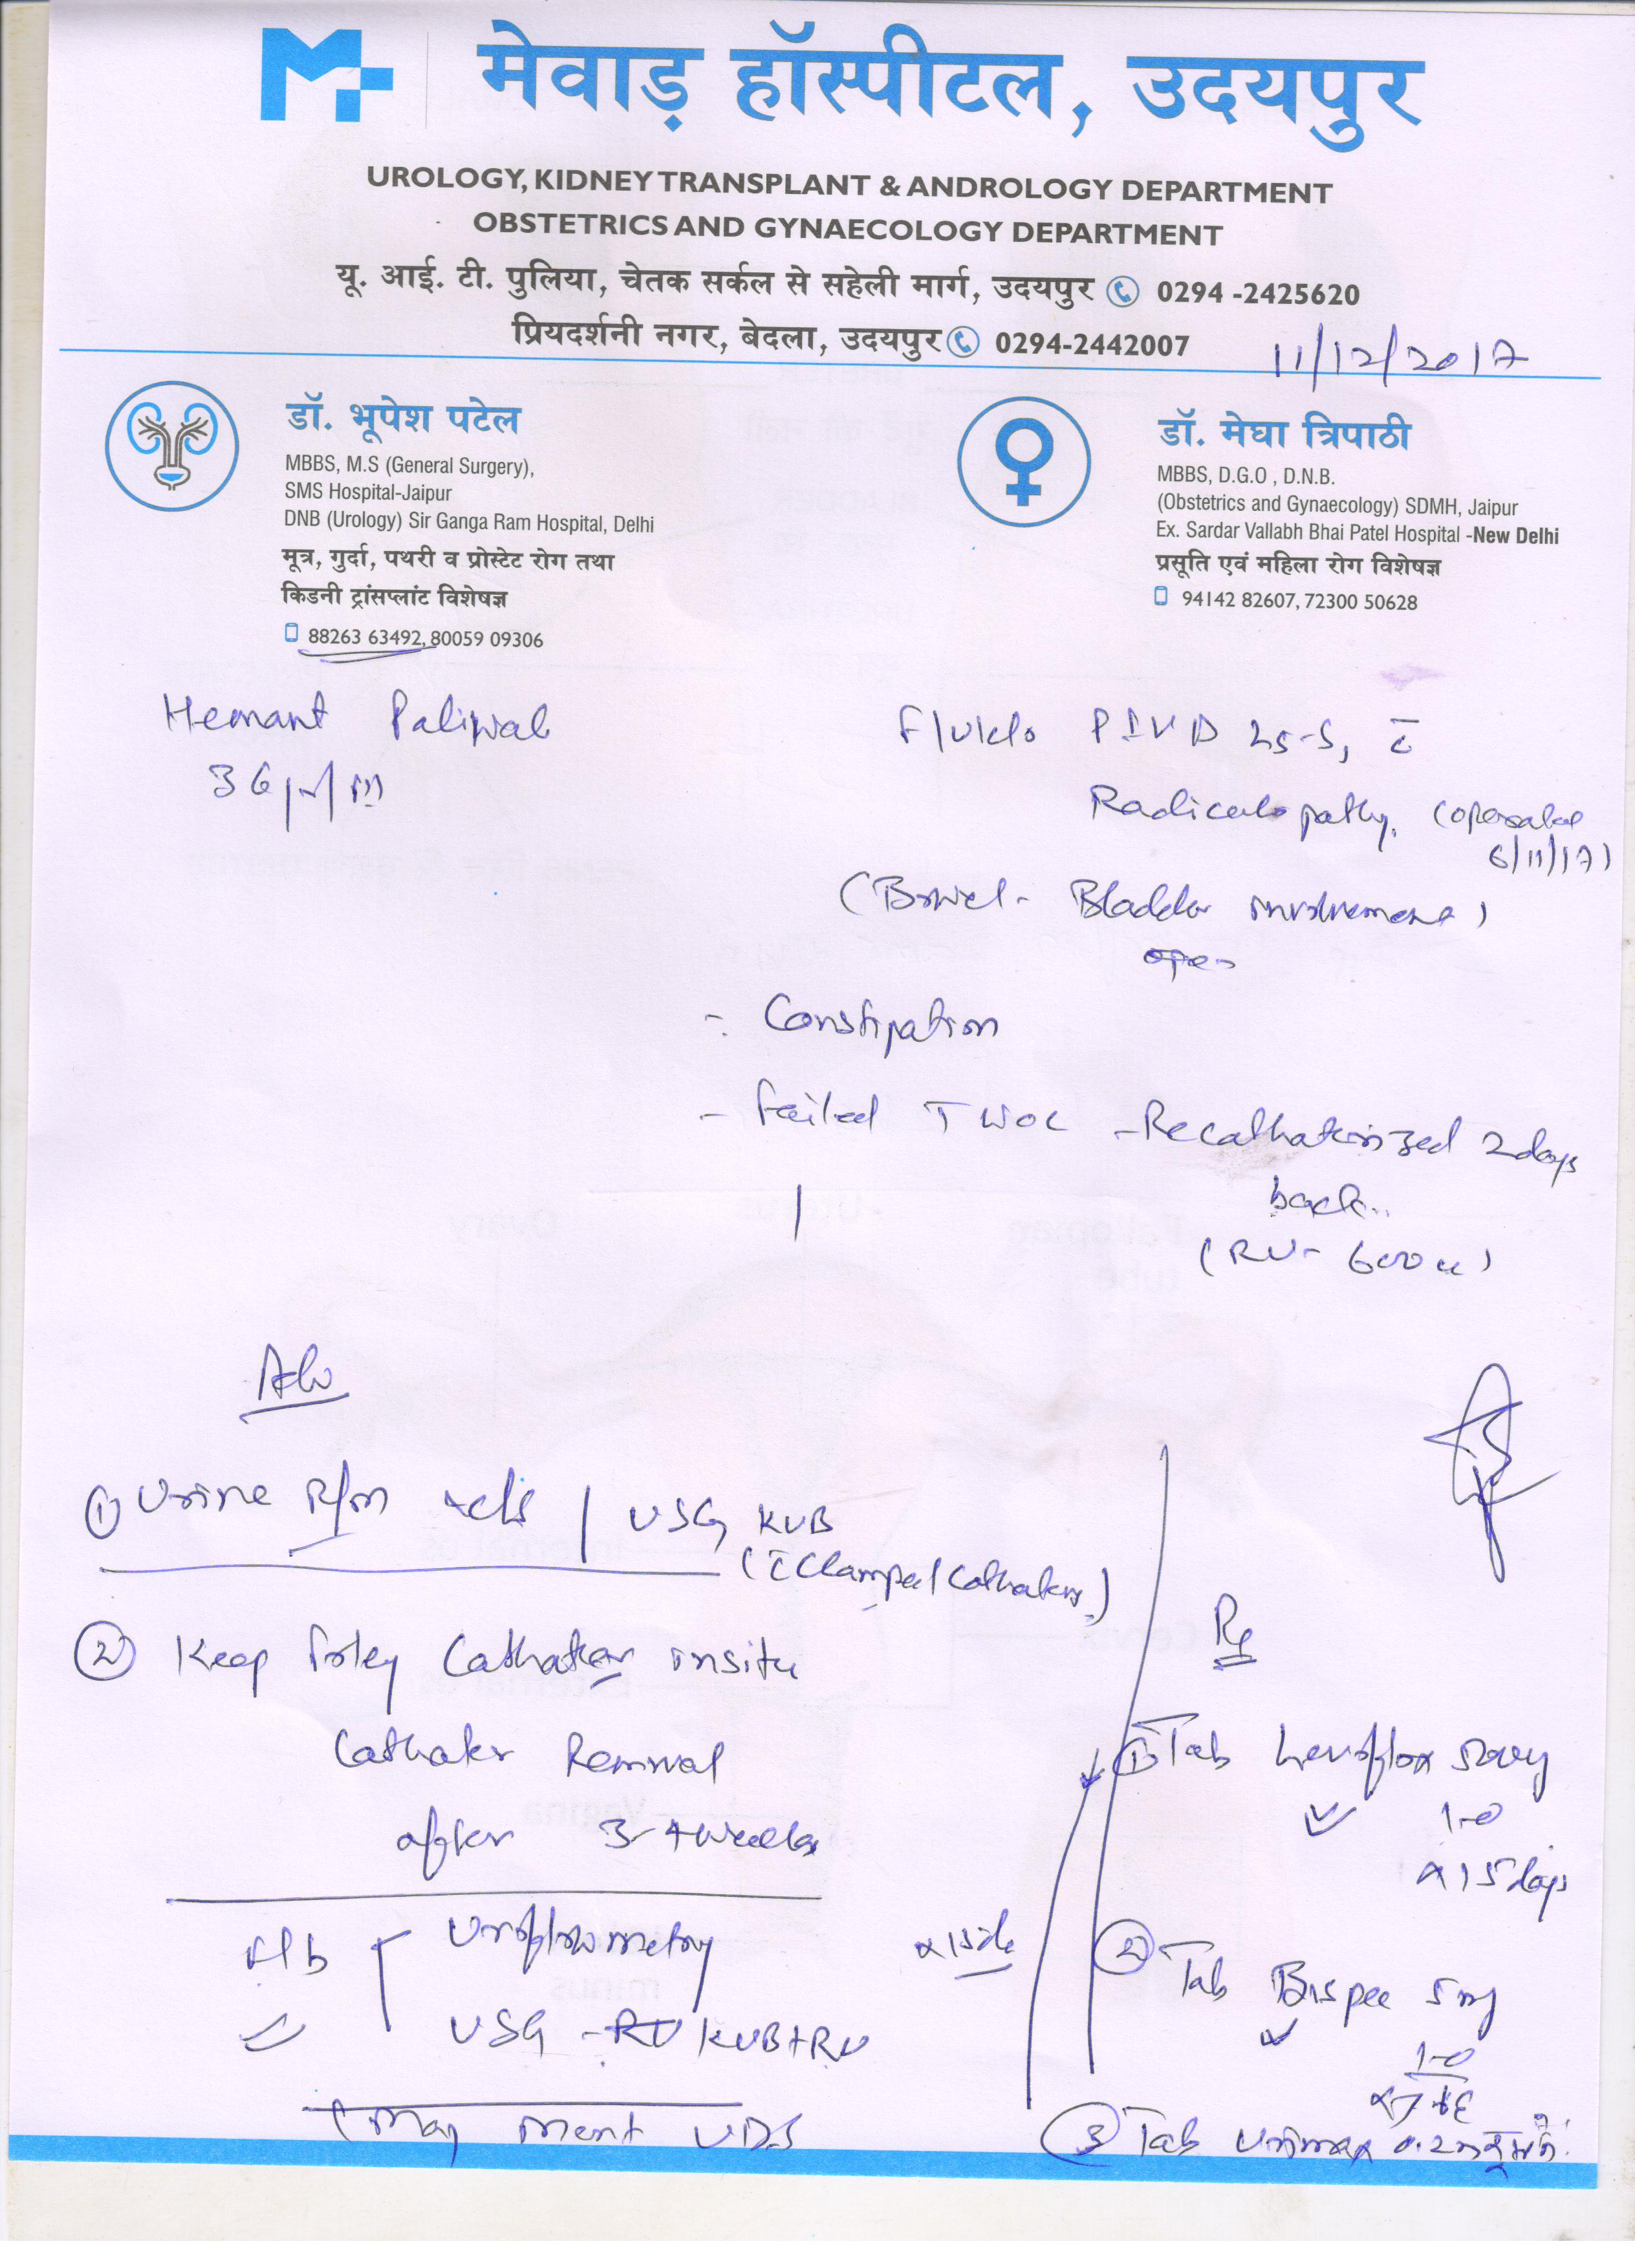 मेवाड़ हॉस्पीटल, उदयपुर
UROLOGY, KIDNEY TRANSPLANT & ANDROLOGY DEPARTMENT
OBSTETRICS AND GYNAECOLOGY DEPARTMENT
यू. आई. टी. पुलिया, चेतक सर्कल से सहेली मार्ग, उदयपुर 0294 -2425620
प्रियदर्शनी नगर, बेदला, उदयपुर 0294-2442007
11/12/2017
डॉ. भूपेश पटेल
MBBS, M.S (General Surgery),
SMS Hospital-Jaipur
DNB (Urology) Sir Ganga Ram Hospital, Delhi
मूत्र, गुर्दा, पथरी व प्रोस्टेट रोग तथा
किडनी ट्रांसप्लांट विशेषज्ञ
88263 63492, 80059 09306
डॉ. मेघा त्रिपाठी
MBBS, D.G.O , D.N.B.
(Obstetrics and Gynaecology) SDMH, Jaipur
Ex. Sardar Vallabh Bhai Patel Hospital -New Delhi
प्रसूति एवं महिला रोग विशेषज्ञ
94142 82607, 72300 50628
Hemant Paliwal
36/y/m
F/U/c/o PIVD L5-S1 c̄
Radiculopathy. (operated
6/11/17)
(Bowel - Bladder involvement)
- Constipation
- Failed TWOC - Recatheterized 2 days
back..
(RU- 600cc)
Adv
① Urine R/m &c/s / USG KUB
(c̄ Clamped Catheter)
② Keep foley Catheter insitu
Catheter Removal
after 3-4 weeks
f/b Uroflowmetry
USG - KUB+RU
(May Need UDS
Rx
① Tab Levoflox 500mg
1-0
x 15 days
② Tab 5mg
1-0
③ Tab Urimax 0.2